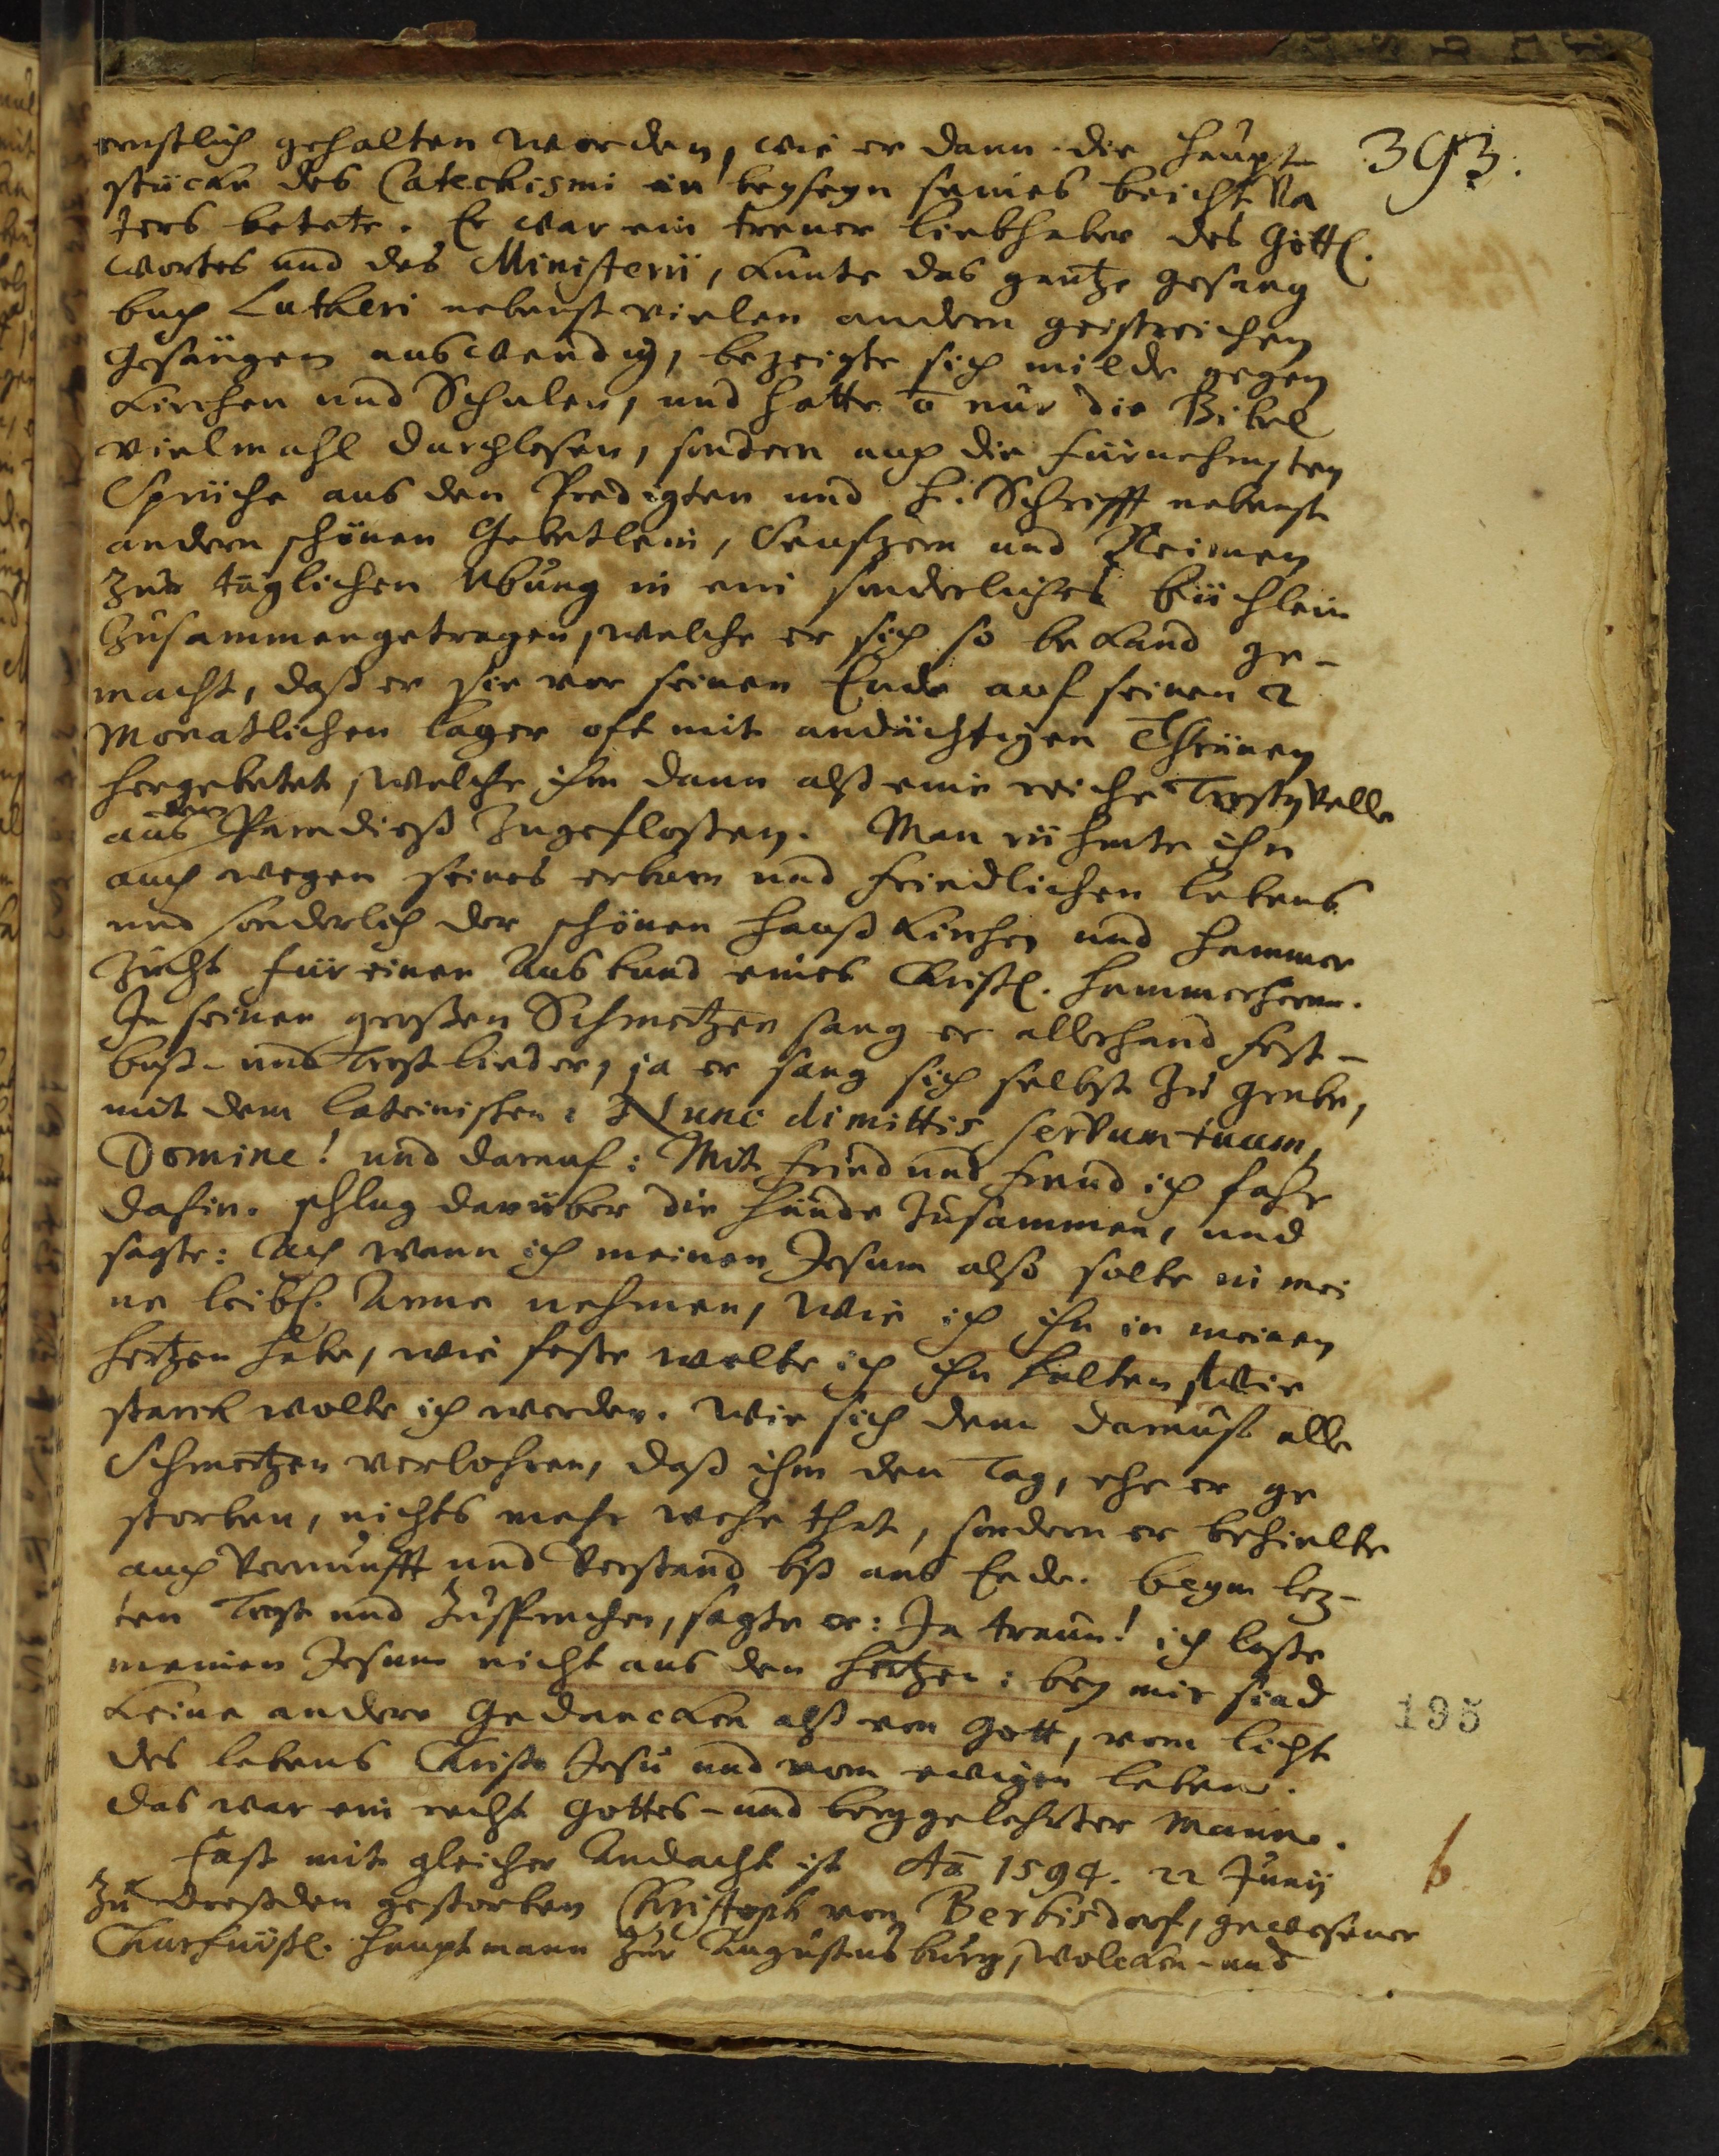 393.
ernstlich gehalten worden, wie er dann die Haupt
stücke des Catechismi in beyseyn seines beicht Va
ters betete. Er war ein treuer liebhaber des Göttl.
Wortes und des Ministerii, kunte das gantze gesang
buch Lutheri nebenst vielen andern geistreichen
Gesängen auswendig, bezeigte sich milde gegen
Kirchen und Schulen, und hatte õ nur die Bibel
vielmahl durchlesen, sondern auch die fürnehmsten
Sprüche aus den Predigten und H. Schrifft nebenst
andern schönen Gebetlein, Seufzern und Reimen
zur täglichen Ubung in ein sonderliches büchlein
zusammengetragen, welche er sich so bekand ge-
macht, daß er sie vor seinen Ende auf seinen 2
Monatlichen lager oft mit andächtigen Thränen
hergebetet, welche ihm dann alß eine reiche Trostqvelle
aus dem Paradieß zugefloßen. Man rühmte ihn
auch wegen seines erbarn und friedlichen lebens
und sonderlich der schönen Hauß Kirchen und Hammer
zucht für einen Ausbund eines Christl. Hammerherrn.
In seinen großen Schmertzen sang er allerhand Fest-
buß- und Trost lieder, ja er sang sich selbst zu grabe,
mit dem lateinischen: Nunc dimittis servum tuum,
Domine! und darauf: Mit Fried und Freud ich fahr
dahin. schlug darüber die Hände zusammen, und
sagte: Ach wann ich meinen Jesum also solte in mei
ne leibl. Arme nehmen, wie ich ihn in meinen
Hertzen habe, wie feste wolte ich ihn halten, wie
starck wolte ich werden. Wie sich denn darauf alle
Schmertzen verlohren, daß ihm den Tag, ehe er ge
storben, nichts mehr wehe that, sondern er behielte
auch Vernunfft und Verstand biß ans Ende. beym lez-
ten Trost und Zusprechen, sagte er: Ja traun! ich laße
meinen Jesum nicht aus den Hertzen: bey mir sind
keine andere Gedancken alß von Gott, vom licht
des lebens Christo Jesu und vom ewigen leben.
Das war ein recht Gottes- und berggelehrter Mann.
Fast mit gleicher Andacht ist Aõ 1594. 22 Junij
zu Dreßden gestorben Christoph von Berbisdorf, gewesener
Churfürstl. Hauptmann zur Augustusburg, Wolcken- und
195
b